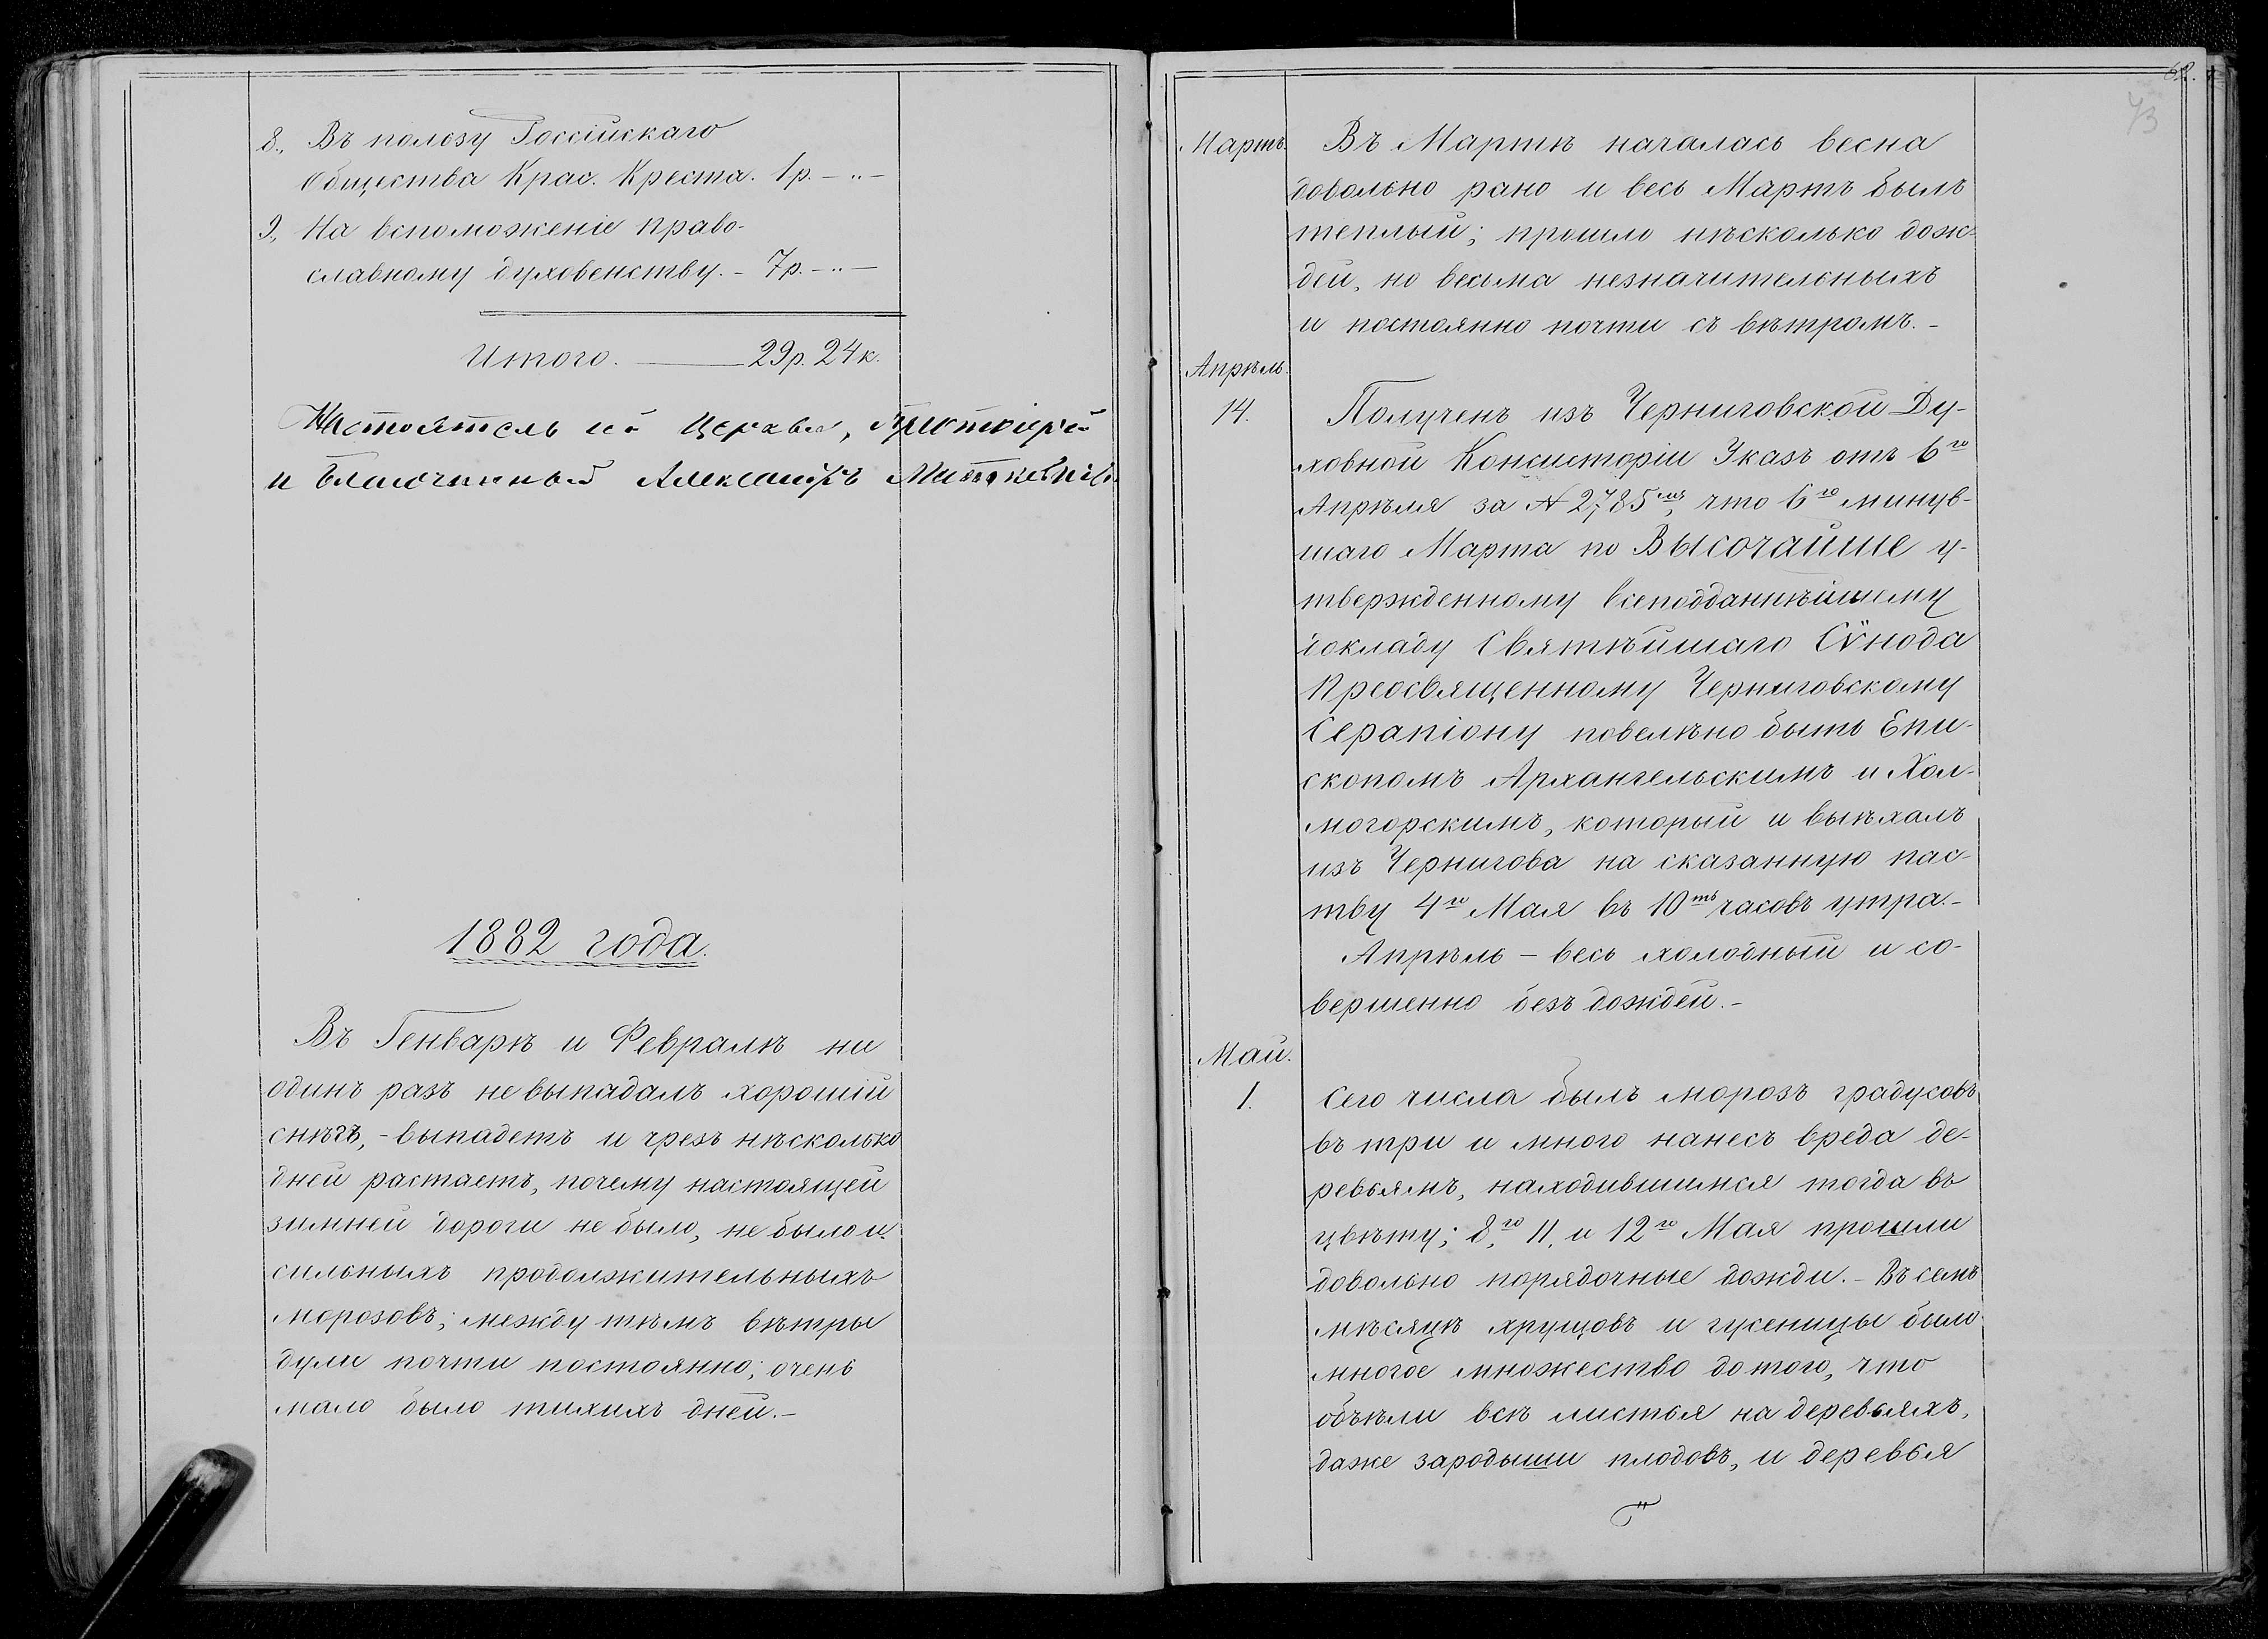 8., Въ пользу Россійскаго
Общества Крас. Креста. 1 р. – „ –
9., На вспоможеніе право-
славному духовенству. – 7 р. – „ –
Итого. 29 р. 24 к.
Настоятель церкви, Протоіерей
и Благочинный Александръ
1882 года.
Въ Генварѣ и Февралѣ ни
одинъ разъ не выпадалъ хорошій
снѣгъ, – выпадетъ и чрезъ нѣсколько
дней растаетъ, почему настоящей
зимней дороги не было, не было и
сильныхъ продолжительныхъ
морозовъ; между тѣмъ вѣтры
дули почти постоянно; очень
мало было тихихъ дней. –
73
Мартъ. Въ Мартѣ началась весна
довольно рано и весь Мартъ былъ
теплый; прошло нѣсколько дож-
дей, но весьма незначительныхъ
и постоянно почти съ вѣтромъ. –
Апрѣль.
14. Полученъ изъ Черниговской Ду-
ховной Консисторіи Указъ отъ 6го
Апрѣля за № 2785мъ, что 6го минув-
шаго Марта по Высочайше у-
твержденному всеподданнѣйшему
докладу Святѣйшаго Сѵнода
Преосвященному Черниговскому
Серапіону повелѣно быть Епи-
скопомъ Архангельскимъ и Хол-
могорскимъ, который и выѣхалъ
изъ Чернигова на сказанную пас-
тву 4го Мая въ 10ть часовъ утра. –
Апрѣль – весь холодный и со-
вершенно безъ дождей. –
Май.
1. Сего числа былъ морозъ градусовъ
въ три и много нанесъ вреда де-
ревьямъ, находившимся тогда въ
цвѣту; 8го, 11, и 12го Мая прошли
довольно порядочные дожди. – Въ семъ
мѣсяцѣ хрущовъ и гусеницы было
многое множество до того, что
объѣли всѣ листья на деревьяхъ,
даже зародыши плодовъ, и деревья